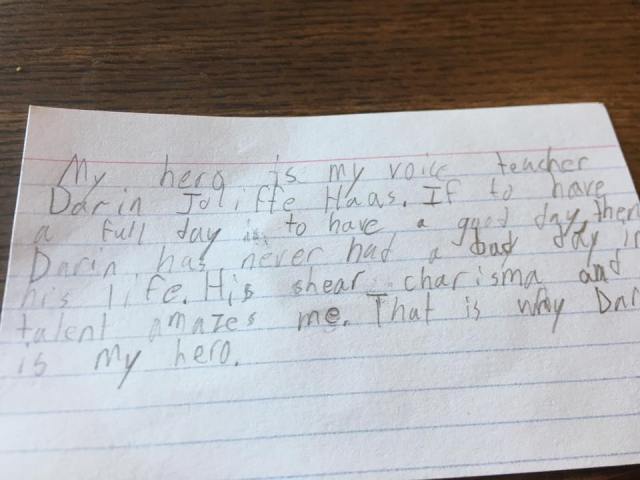 My hero is my voice teacher
Darin Joliffe Haas. If to have
a full day is to have a good day then
Darin has never had a bad day in
his life. His shear charisma and
talent amazes me. That is why Dar
is my hero.